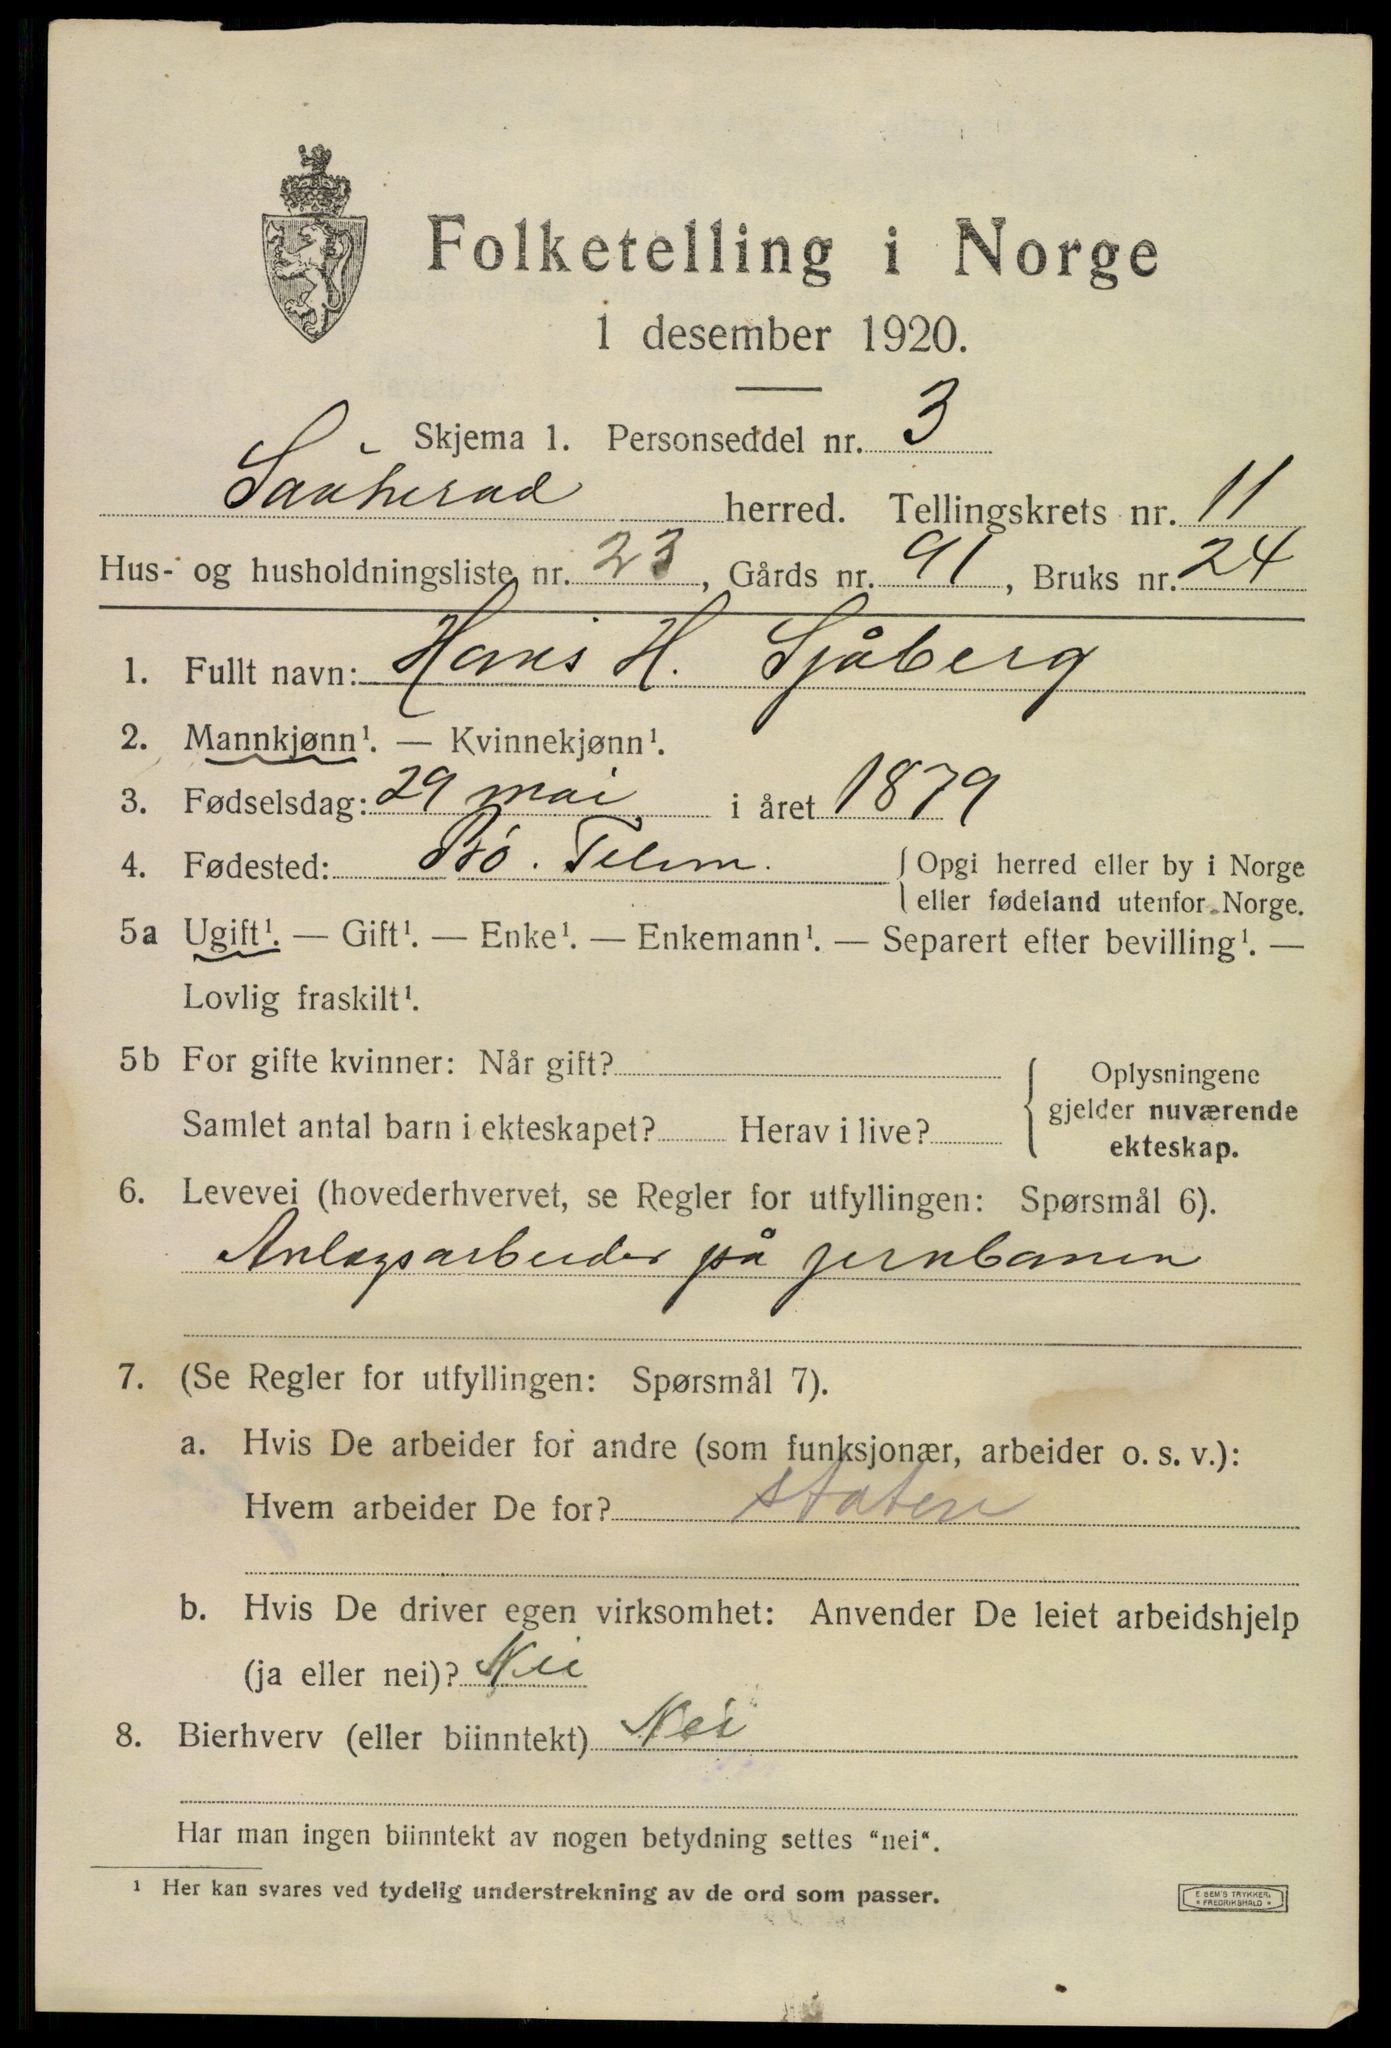 Folketelling i Norge
1 desember 1920.
Skjema 1. Personseddel nr. 3
Sauherad herred. Tellingskrets nr. 11
Hus- og husholdningsliste nr. 23, Gårds nr. 91, Bruks nr. 24
1. Fullt navn: Hans H. Sjåberg
2. Mannkjønn¹. — Kvinnekjønn¹.
3. Fødselsdag: 29 mai i året 1879
4. Fødested: Bø. Telem. { Opgi herred eller by i Norge
eller fødeland utenfor Norge.
5a Ugift¹. — Gift¹. — Enke¹. — Enkemann¹. — Separert efter bevilling¹. —
Lovlig fraskilt¹.
5b For gifte kvinner: Når gift?
Samlet antal barn i ekteskapet? Herav i live?
{ Oplysningene
gjelder nuværende
ekteskap.
6. Levevei (hovederhvervet, se Regler for utfyllingen: Spørsmål 6).
Anlægsarbeider på jernbanen
7. (Se Regler for utfyllingen: Spørsmål 7).
a. Hvis De arbeider for andre (som funksjonær, arbeider o. s. v.):
Hvem arbeider De for? staten
b. Hvis De driver egen virksomhet: Anvender De leiet arbeidshjelp
(ja eller nei)? Nei
8. Bierhverv (eller biinntekt) Nei
Har man ingen biinntekt av nogen betydning settes “nei“.
¹ Her kan svares ved tydelig understrekning av de ord som passer.
E. SEM'S TRYKKERI
* FREDRIKSHALD *